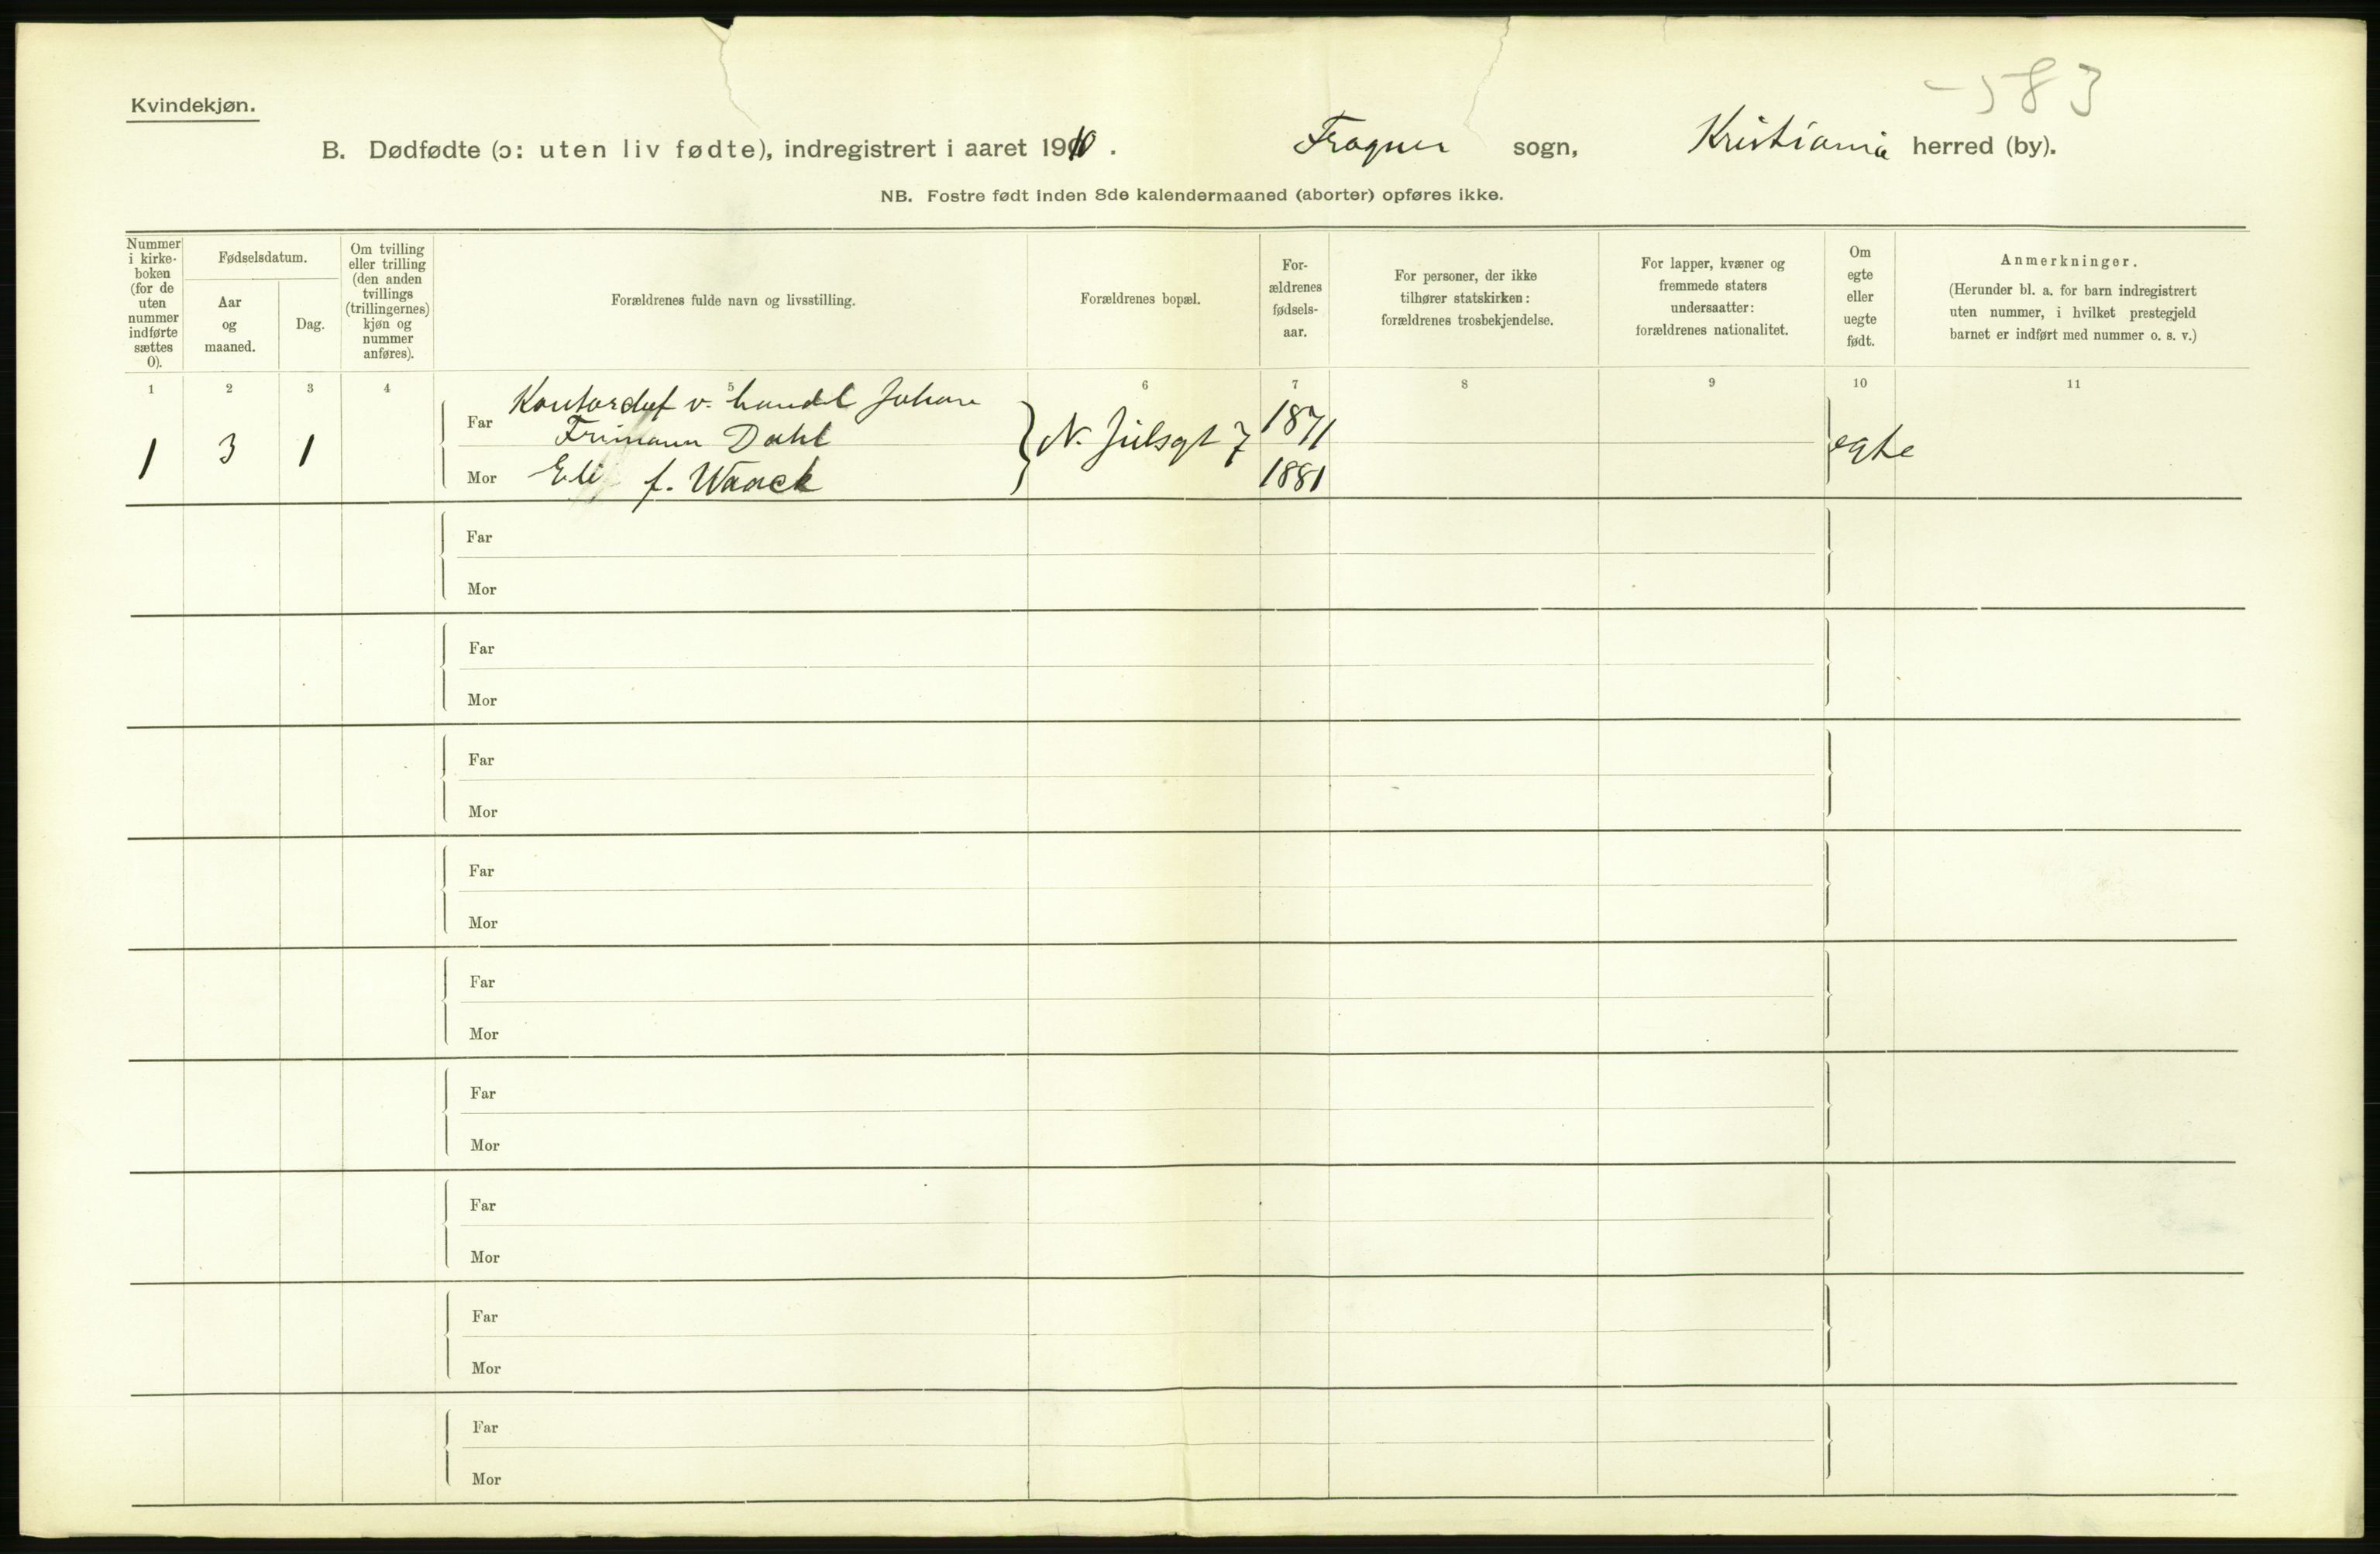 583
Kvindekjøn.
B. Dødfødte (ɔ: uten liv fødte), indregistrert i aaret 1910. Frogner sogn, Kristiania herred (by).
NB. Fostre født inden 8de kalendermaaned (aborter) opføres ikke.
Nummer
i kirke-
boken
(for de
uten
nummer
indførte
sættes
0).
Fødselsdatum.
Aar
og
maaned.
Dag.
Om tvilling
eller trilling
(den anden
tvillings
(trillingernes)
kjøn og
nummer
anføres).
Forældrenes fulde navn og livsstilling.
Forældrenes bopæl.
For-
ældrenes
fødsels-
aar.
For personer, der ikke
tilhører statskirken:
forældrenes trosbekjendelse.
For lapper, kvæner og
fremmede staters
undersaatter:
forældrenes nationalitet.
Om
egte
eller
uegte
født.
Anmerkninger.
(Herunder bl. a. for barn indregistrert
uten nummer, i hvilket prestegjeld
barnet er indført med nummer o. s. v.)
1 2 3 4 5 6 7 8 9 10 11
Kontorchef v. handel Johan
Far Frimann Dahl 1871
1 3 1 N. Juelsgt 7 egte
Mor Eli f. Waack 1881
Far
Mor
Far
Mor
Far
Mor
Far
Mor
Far
Mor
Far
Mor
Far
Mor
Far
Mor
Far
Mor